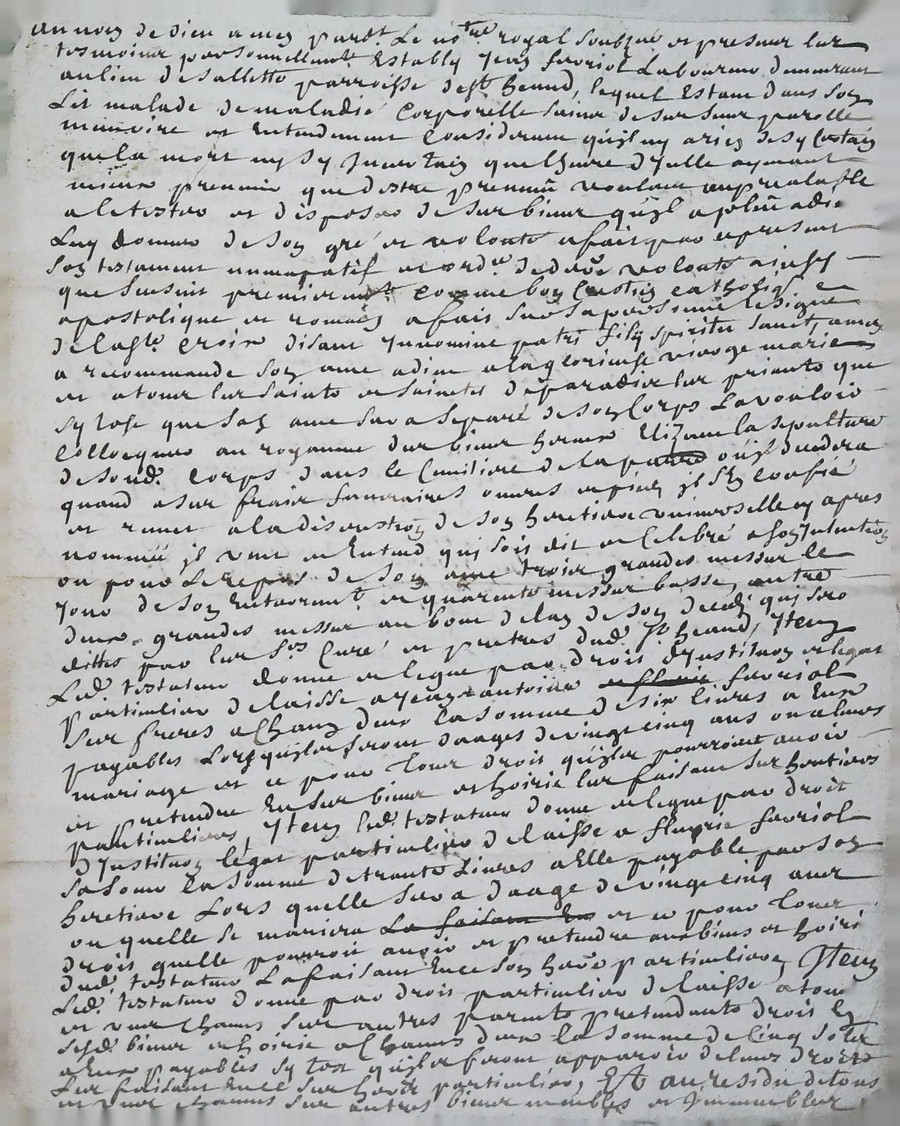 au nom de dieu amen pardt Le notre royal soubzné et presens les
tesmoins personnellemt Estably Jean favriol Laboureur demeurant
au lieu de Salletto parroisse de st heand, lequel Estant dans son
Lit malade de maladie Corporelle sain de ses sens parolle
memoire et Entendement Considerant quil ny a rien de sy Certain
que la mort ny sy Incertain que lheure dicelle aymant
mieux prevenir que destre prevenu voulant au prealable
a le tester et disposer de ses biens quil a pleu a die
Luy donner de son gré et volonté a fait par ce present
son testament nuncupatif et ordre de dere volonte ainsy
que sensuit premieremt comme bon Crestien catholiq
apostolique et romain a fait sur sa personne le signe
de la ste Croix disant In nomine patris filij spiritus sancti, amen
a recommande son ame a dieu a la glorieuse vierge marie
et a tous les saints et saintes de paradis les priants que
sy tost que son ame sera separé de son Corps La vouloir
Collocquer au royaume des bien heureux Elizant la sepulture
de soud. Corps dans le Cimitiere de la par ou il decedera
quand a ses frais funeraires œuvres et pies il sen confie
et remet a la discretion de son heretiere universelle cy apres
nommée il veut et Entend qui soit dit et Celebré a son Intention
ou pour Le repos de son ame trois grandes messes le
jour de son Enterremt et quarante messes basses, autre
deux grandes messes au bout de lan de son deces qui sero
dittes par les srs Curé et pretres dud. st heand, Item
Led. testateur donne et legue par droit dInstituon et legat
particulier delaisse a Jean antoine favriol
ses freres a Chacun deux la somme de six livres a Eux
payables Lors quils seront daages de vingt cinq ans ou a leurs
mariage et ce pour tous droit quils pourroient avoir
et pretendre En ses biens et hoirie les faisant ses heritiers
particulliers, Item led. testateur donne et legue par droit
dInstituon legat particulier delaisse a favriol
sa sœur La somme de trante Livres a Elle payable par son
heretiere Lors quelle sera daage de vingt cinq ans
ou quelle se mariera La faisant En et ce pour tous
drois quelle pourroit avoir et pretendre aux biens et hoirie
dud. testateur La faisant En ce son here particuliere, Item
Led. testateur donne par droit particulier delaisse a tous
et un chacuns ses autres parents pretendants droit En
sesd. biens et hoirie a Chacuns deux la somme de Cinq sols
a Eux payables sy tost quils feront apparoir de leurs droits
Les faisant En ce ses heres particulier, Et au residu de tous
et un chacuns ses autres biens meubles et Immeubles